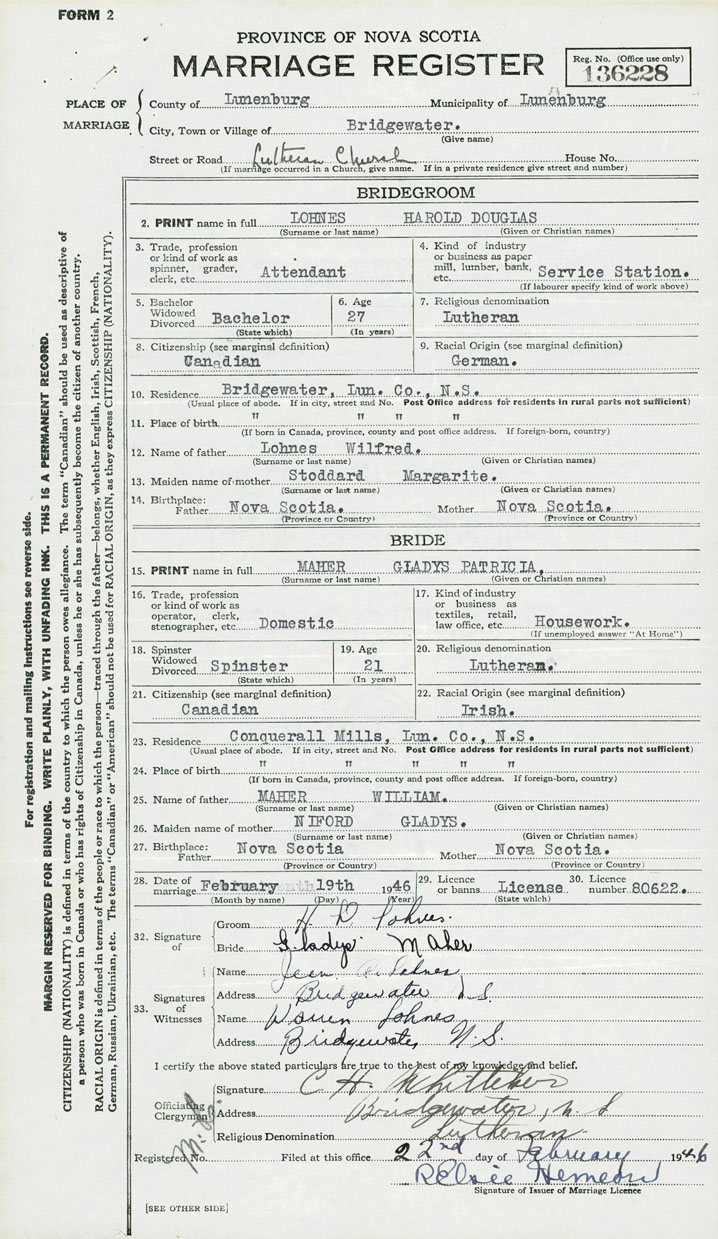 FORM 2
PROVINCE OF NOVA SCOTIA
MARRIAGE REGISTER
Reg. No. (Office use only)
136228
PLACE OF MARRIAGE
County of Lunenburg Municipality of Lunenburg
City, Town or Village of Bridgewater.
(Give name)
Street or Road Lutheran Church House No.
(If marriage occurred in a Church, give name. If in a private residence give street and number)
BRIDEGROOM
2. PRINT name in full LOHNES HAROLD DOUGLAS
(Surname or last name) (Given or Christian names)
3. Trade, profession or kind of work as spinner, grader, clerk, etc. Attendant
4. Kind of industry or business as paper mill, lumber, bank, etc. Service Station.
(If labourer specify kind of work above)
5. Bachelor Widowed Divorced Bachelor
(State which)
6. Age 27
(In years)
7. Religious denomination
Lutheran
8. Citizenship (see marginal definition)
Canadian
9. Racial Origin (see marginal definition)
German.
10. Residence Bridgewater, Lun. Co., N.S.
(Usual place of abode. If in city, street and No. Post Office address for residents in rural parts not sufficient)
11. Place of birth " " " "
(If born in Canada, province, county and post office address. If foreign-born, country)
12. Name of father Lohnes Wilfred.
(Surname or last name) (Given or Christian names)
13. Maiden name of mother Stoddard Margarite.
(Surname or last name) (Given or Christian names)
14. Birthplace: Father Nova Scotia. Mother Nova Scotia.
(Province or Country) (Province or Country)
BRIDE
15. PRINT name in full MAHER GLADYS PATRICIA,
(Surname or last name) (Given or Christian names)
16. Trade, profession or kind of work as operator, clerk, stenographer, etc. Domestic
17. Kind of industry or business as textiles, retail, law office, etc. Housework.
(If unemployed answer "At Home")
18. Spinster Widowed Divorced Spinster
(State which)
19. Age 21
(In years)
20. Religious denomination
Lutheran.
21. Citizenship (see marginal definition)
Canadian
22. Racial Origin (see marginal definition)
Irish.
23. Residence Conquerall Mills, Lun. Co., N.S.
(Usual place of abode. If in city, street and No. Post Office address for residents in rural parts not sufficient)
24. Place of birth " " " " "
(If born in Canada, province, county and post office address. If foreign-born, country)
25. Name of father MAHER WILLIAM.
(Surname or last name) (Given or Christian names)
26. Maiden name of mother NIFORD GLADYS.
(Surname or last name) (Given or Christian names)
27. Birthplace: Father Nova Scotia Mother Nova Scotia.
(Province or Country) (Province or Country)
28. Date of marriage February 19th 1946
(Month by name) (Day) (Year)
29. Licence or banns License
(State which)
30. Licence number 80622.
32. Signature of
Groom H. D Lohnes.
Bride Gladys Maher
33. Signatures of Witnesses
Name Jean Lohnes
Address Bridgewater N.S.
Name Warren Lohnes
Address Bridgewater, N.S.
I certify the above stated particulars are true to the best of my knowledge and belief.
Officiating Clergyman
Signature C. H. Whitteker
Address Bridgewater, N.S
Religious Denomination Lutheran
Registered No. Filed at this office 22nd day of February 1946
R Elsie Hemeon
Signature of Issuer of Marriage Licence
[SEE OTHER SIDE]
For registration and mailing instructions see reverse side.
MARGIN RESERVED FOR BINDING. WRITE PLAINLY, WITH UNFADING INK. THIS IS A PERMANENT RECORD.
CITIZENSHIP (NATIONALITY) is defined in terms of the country to which the person owes allegiance. The term "Canadian" should be used as descriptive of
a person who was born in Canada or who has rights of Citizenship in Canada, unless he or she has subsequently become the citizen of another country.
RACIAL ORIGIN is defined in terms of the people or race to which the person—traced through the father—belongs, whether English, Irish, Scottish, French,
German, Russian, Ukrainian, etc. The terms "Canadian" or "American" should not be used for RACIAL ORIGIN, as they express CITIZENSHIP (NATIONALITY).